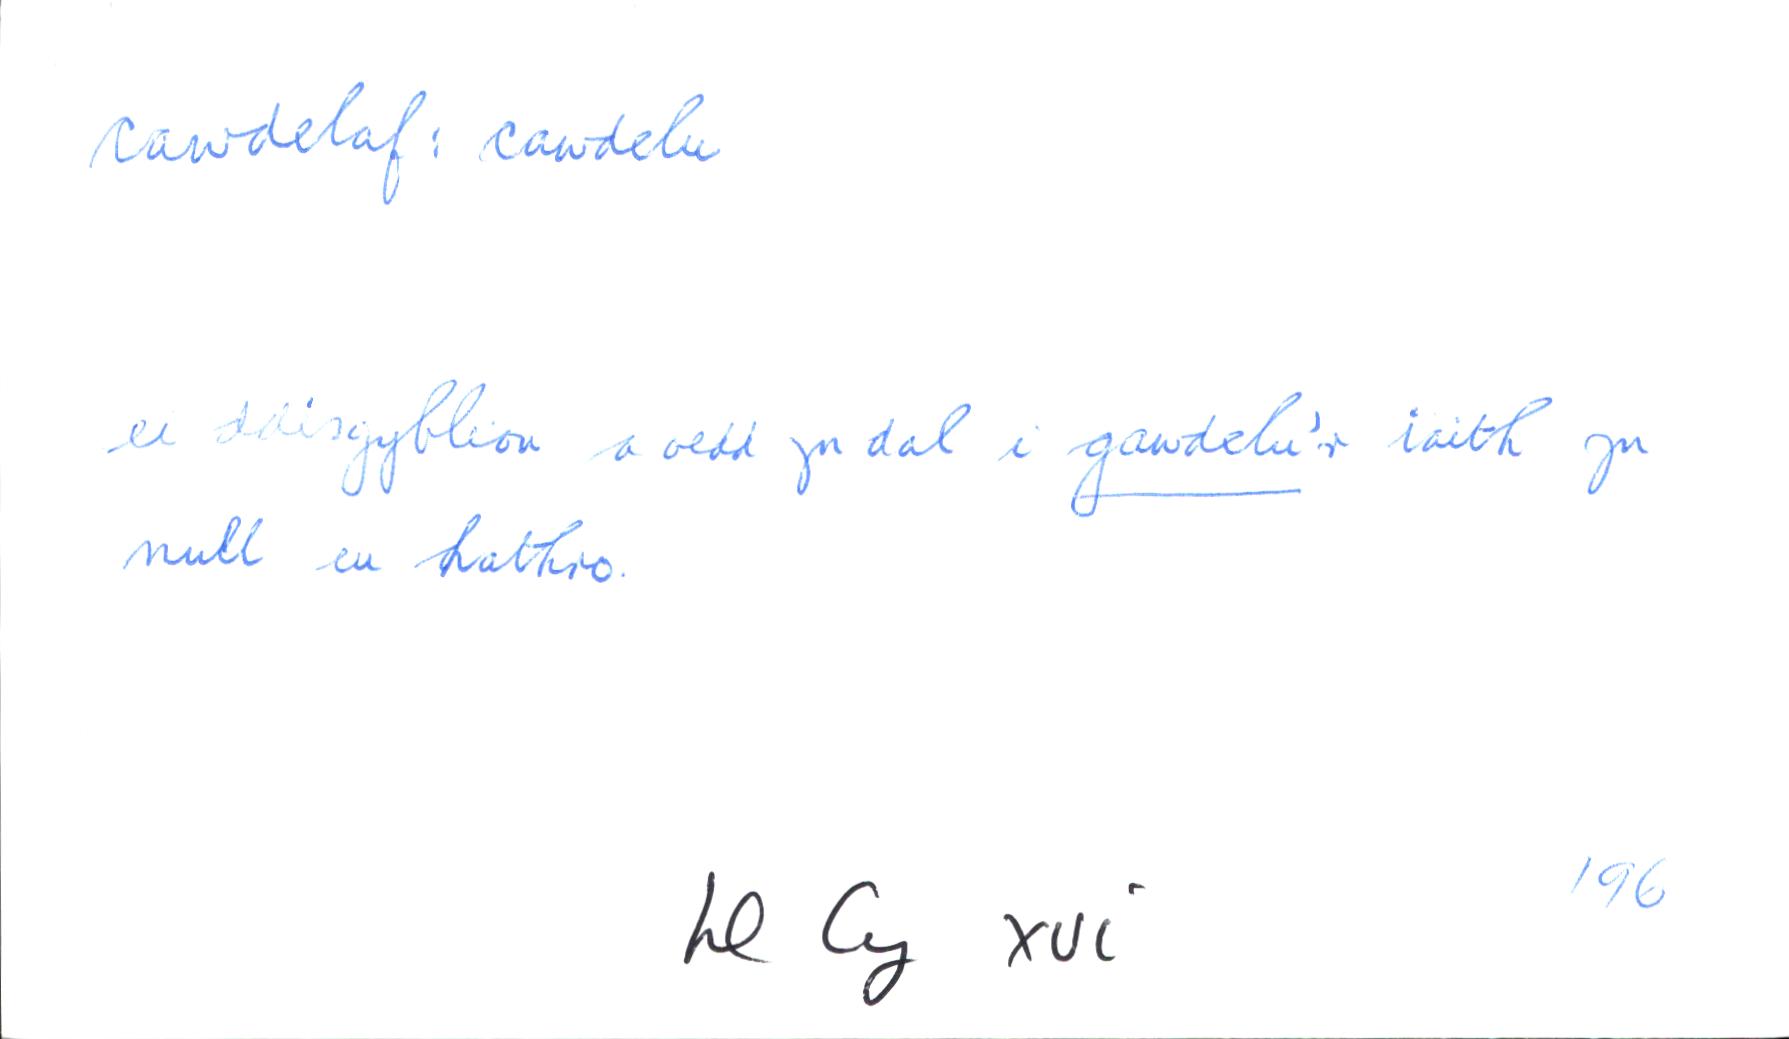 cawdelaf: cawdelu
ei ddisgyblion a oedd yn dal i gawdelu'r iaith yn
null eu hathro.
196
Ll Cy XVI